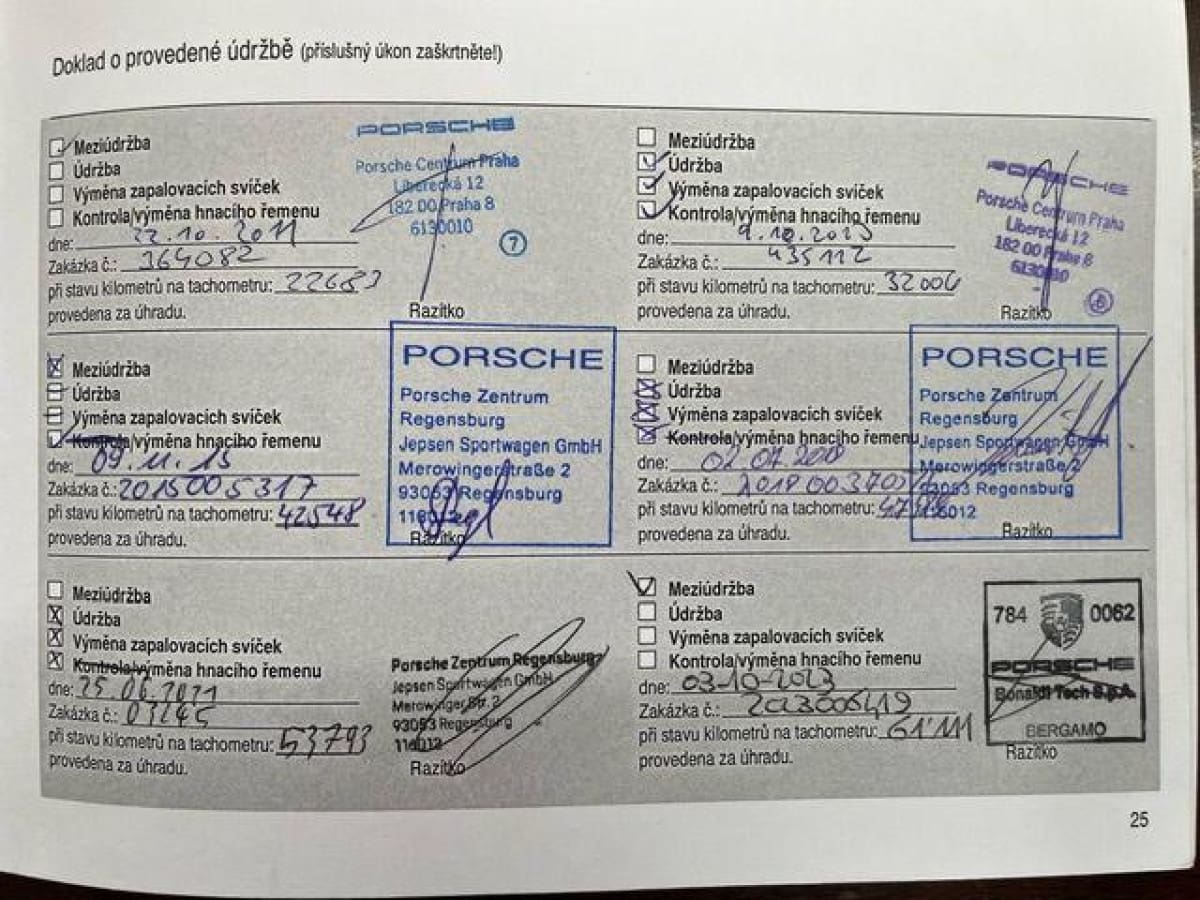 Doklad o provedené údržbě (příslušný úkon zaškrtněte!)
Meziúdržba
Údržba
Výměna zapalovacích svíček
Kontrola/výměna hnacího řemenu
dne: 22.10.2011
Zakázka č.: 364082
při stavu kilometrů na tachometru: 22683
provedena za úhradu.
PORSCHE
Porsche Centrum Praha
Liberecká 12
182 00 Praha 8
6130010
7
Razítko
Meziúdržba
Údržba
Výměna zapalovacích svíček
Kontrola/výměna hnacího řemenu
dne: 9.10.2013
Zakázka č.: 435112
při stavu kilometrů na tachometru: 32006
provedena za úhradu.
PORSCHE
Porsche Centrum Praha
Liberecká 12
182 00 Praha 8
6130010
Razítko
Meziúdržba
Údržba
Výměna zapalovacích svíček
Kontrola/výměna hnacího řemenu
dne: 09.11.15
Zakázka č.: 2015005317
při stavu kilometrů na tachometru: 42548
provedena za úhradu.
PORSCHE
Porsche Zentrum
Regensburg
Jepsen Sportwagen GmbH
Merowingerstraße 2
93053 Regensburg
116012
Razítko
Meziúdržba
Údržba
Výměna zapalovacích svíček
Kontrola/výměna hnacího řemenu
dne:
Zakázka č.:
při stavu kilometrů na tachometru:
provedena za úhradu.
PORSCHE
Porsche Zentrum
Regensburg
Jepsen Sportwagen GmbH
Merowingerstraße 2
93053 Regensburg
116012
Razítko
Meziúdržba
Údržba
Výměna zapalovacích svíček
Kontrola/výměna hnacího řemenu
dne: 25.06.2021
Zakázka č.:
při stavu kilometrů na tachometru: 53793
provedena za úhradu.
Porsche Zentrum Regensburg
Jepsen Sportwagen GmbH
Merowinger Str. 2
93053 Regensburg
116012
Razítko
Meziúdržba
Údržba
Výměna zapalovacích svíček
Kontrola/výměna hnacího řemenu
dne: 03-10-2023
Zakázka č.:
při stavu kilometrů na tachometru: 61'111
provedena za úhradu.
784 0062
PORSCHE
Bonaldi Tech S.p.A.
BERGAMO
Razítko
25